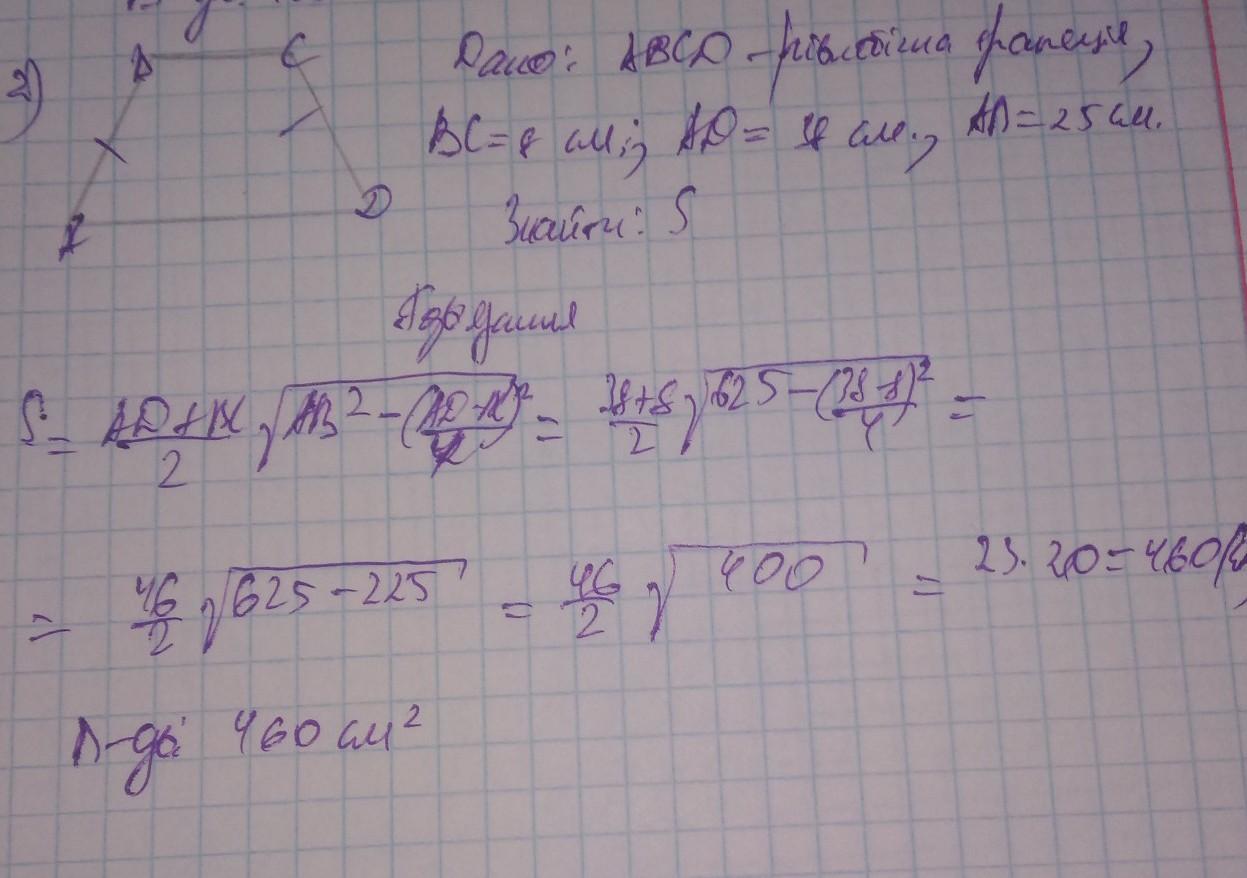 2)
B C
A D
Дано: ABCD - рівнобічна трапеція,
BC = 8 см; AD = 38 см., AB = 25 см.
Знайти: S
Розв'язання
S = \frac{AD+BC}{2} \sqrt{AB^2 - \frac{(AD-BC)^2}{4}} = \frac{38+8}{2} \sqrt{625 - \frac{(38-8)^2}{4}} =
= \frac{46}{2} \sqrt{625-225} = \frac{46}{2} \sqrt{400} = 23 \cdot 20 = 460
В-дь: 460 см²